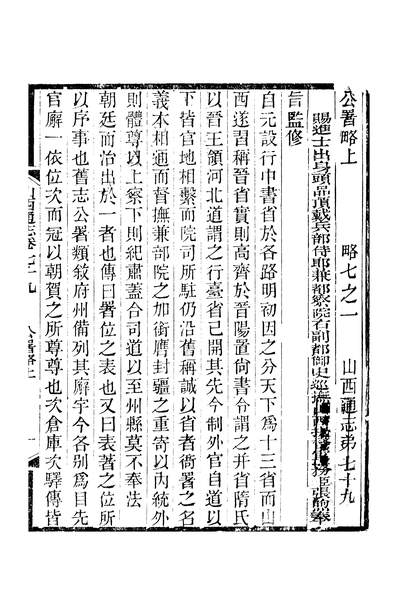 公署略上 略七之一 山西通志弟七十九
賜進士出身頭品頂戴兵部侍郎兼都察院右副都御史巡撫山西 臣張煦奉
旨監修
自元設行中書省於各路明初因之分天下為十三省而山
西遂習稱晉省實則高齊於晉陽置尙書令謂之并省隋氏
以晉王領河北道謂之行臺省已開其先今制外官自道以
下皆官地相繫而院司所駐仍沿舊稱誠以省者衙署之名
義本相通而督撫兼部院之加銜膺封疆之重寄以內統外
則體尊以上察下則紀肅蓋合司道以至州縣莫不奉法
朝廷而治出於一者也傳曰署位之表也又曰表著之位所
以序事也舊志公署類敘府州備列其廨宇今各别為目先
官廨一依位次而冠以朝賀之所尊尊也次倉庫次驛傳皆
山西通志卷七十九 公署略上 一